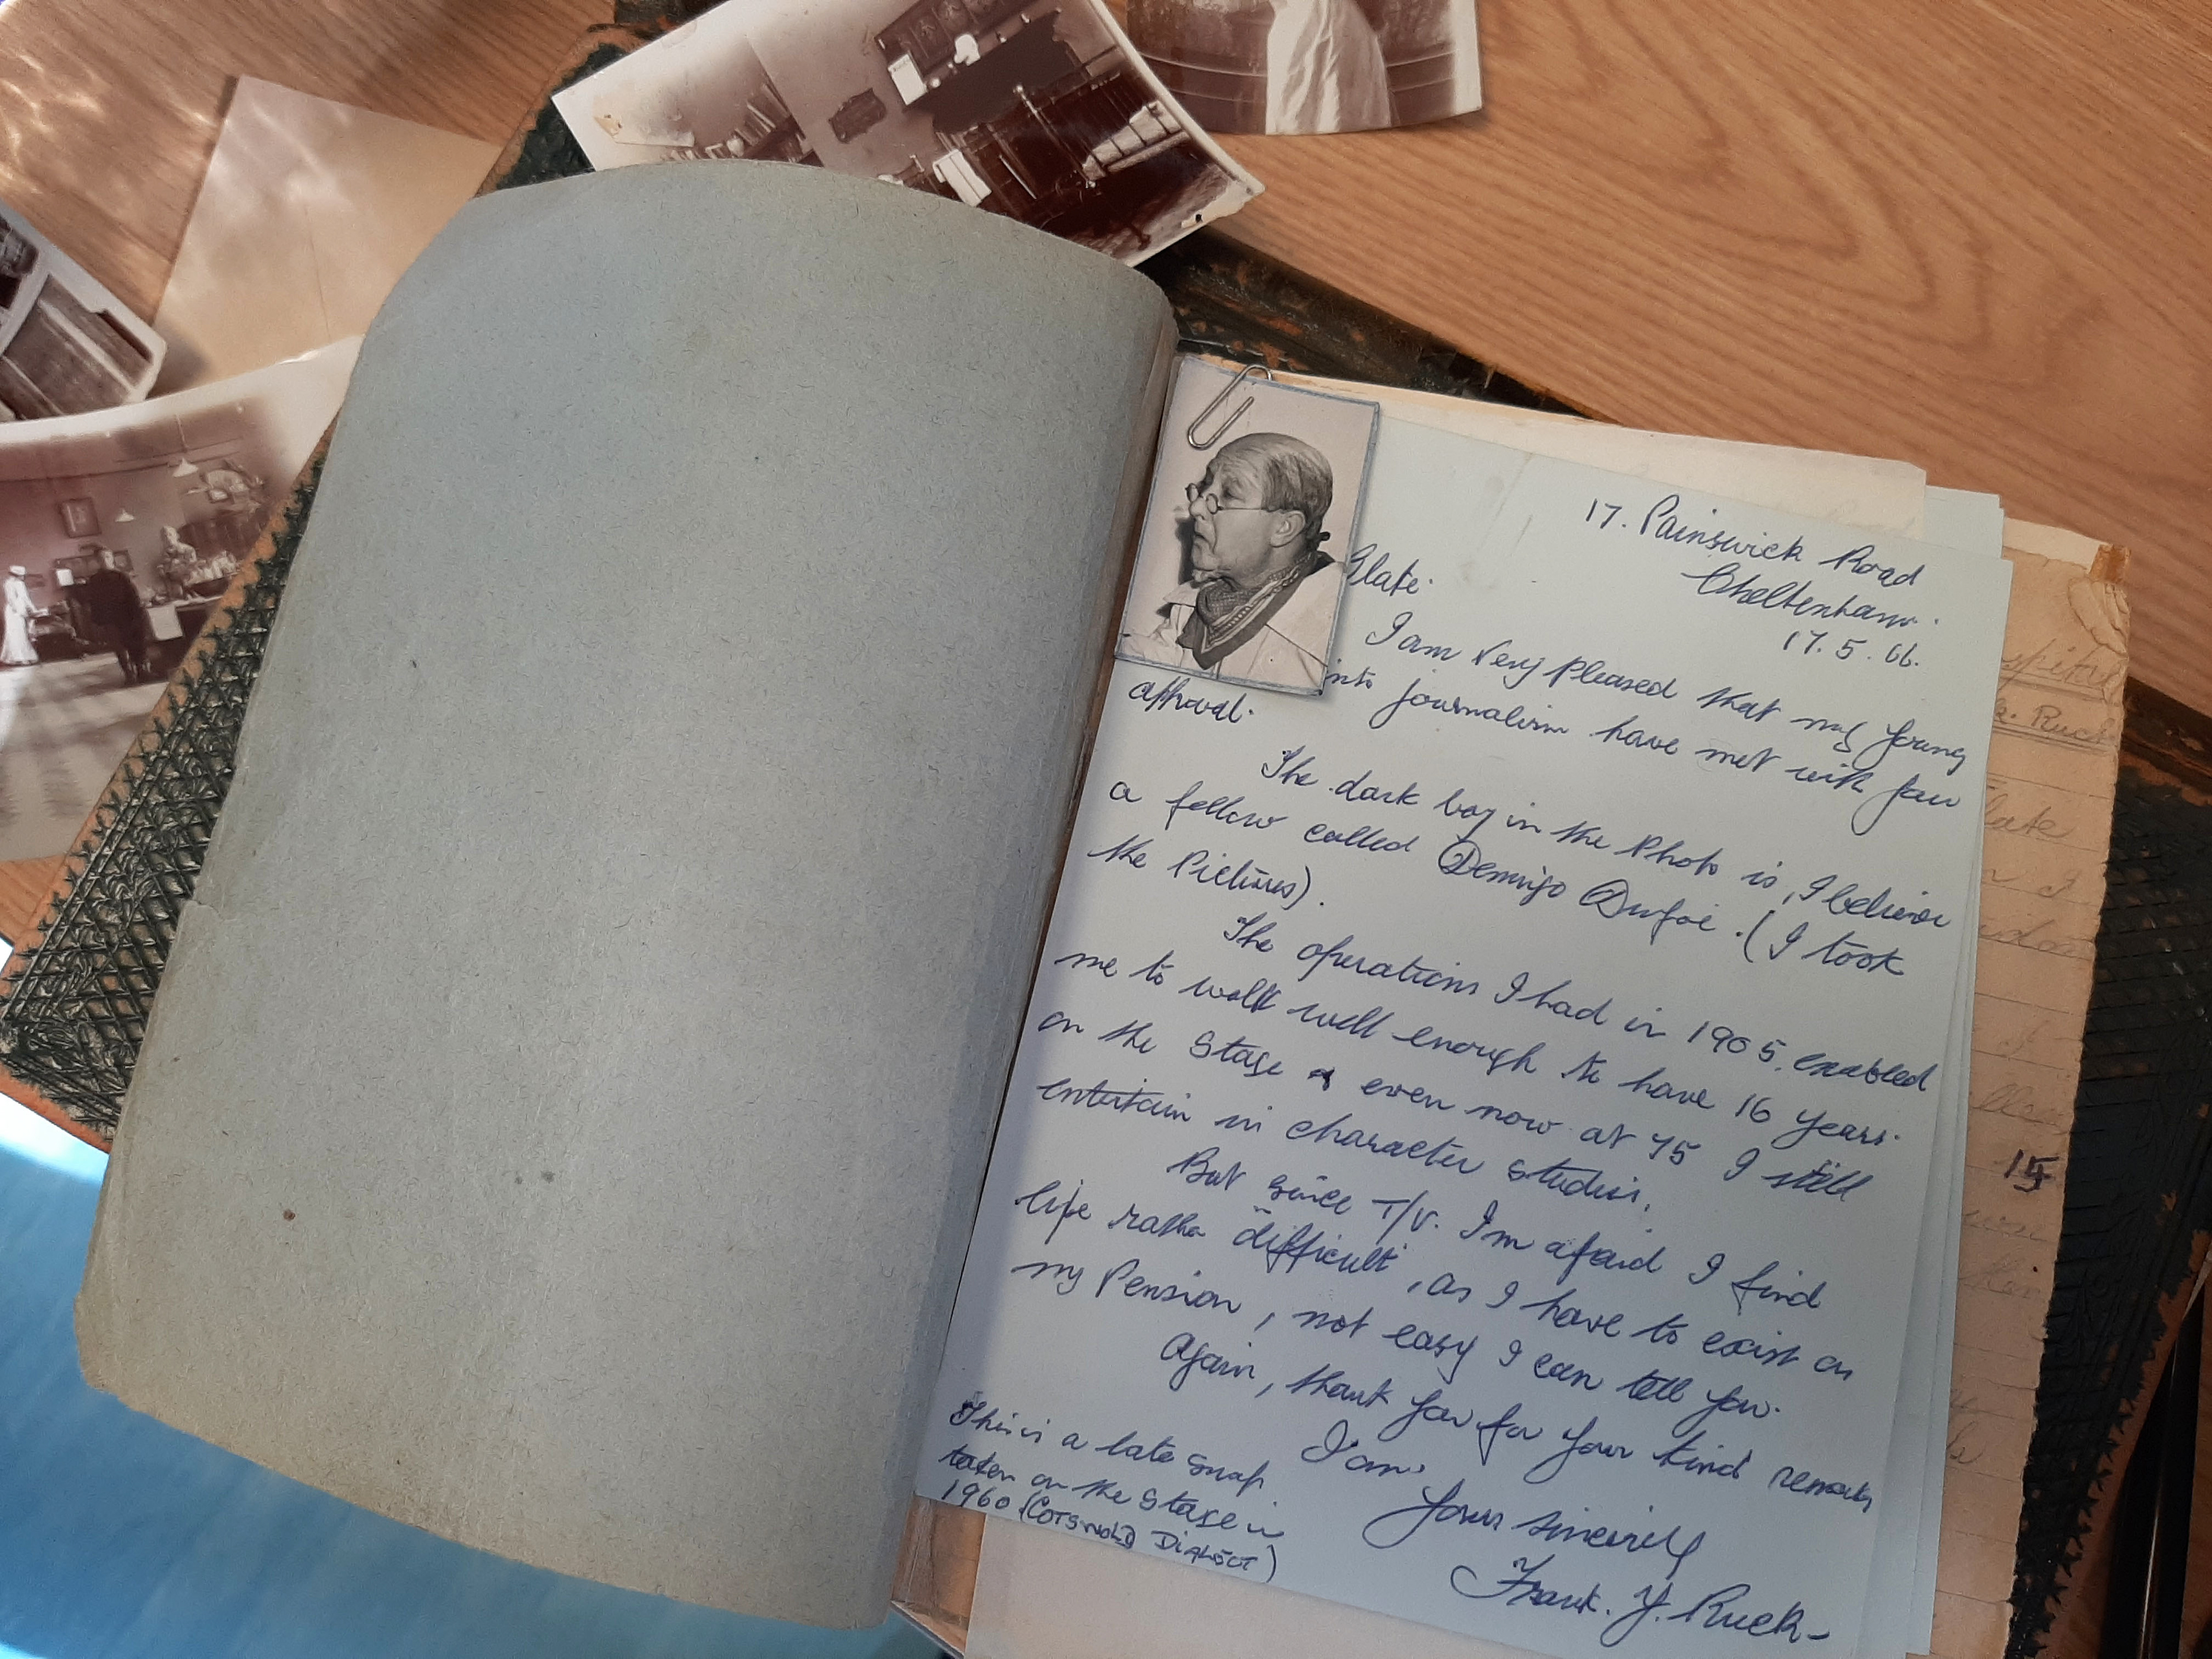 17. Painswick Road
Cheltenham.
17. 5. 66.
Slate.
I am very pleased that my young
into journalism have met with your
approval.
The dark boy in the Photo is, I believe
a fellow called Demigo . (I took
the Pictures).
The operations I had in 1905, enabled
me to walk well enough to have 16 years.
on the stage & even now at 75 I still
entertain in character studies.
But since T/V. I'm afraid I find
life rather "difficult", as I have to exist on
my Pension, not easy I can tell you.
Again, thank you for your kind remarks
I am.
Yours sincerely
Frank. Y. Ruck-
This is a late snap
taken on the stage in
1960 (COTSWOLD DIALECT)
k. Ruck
late
15